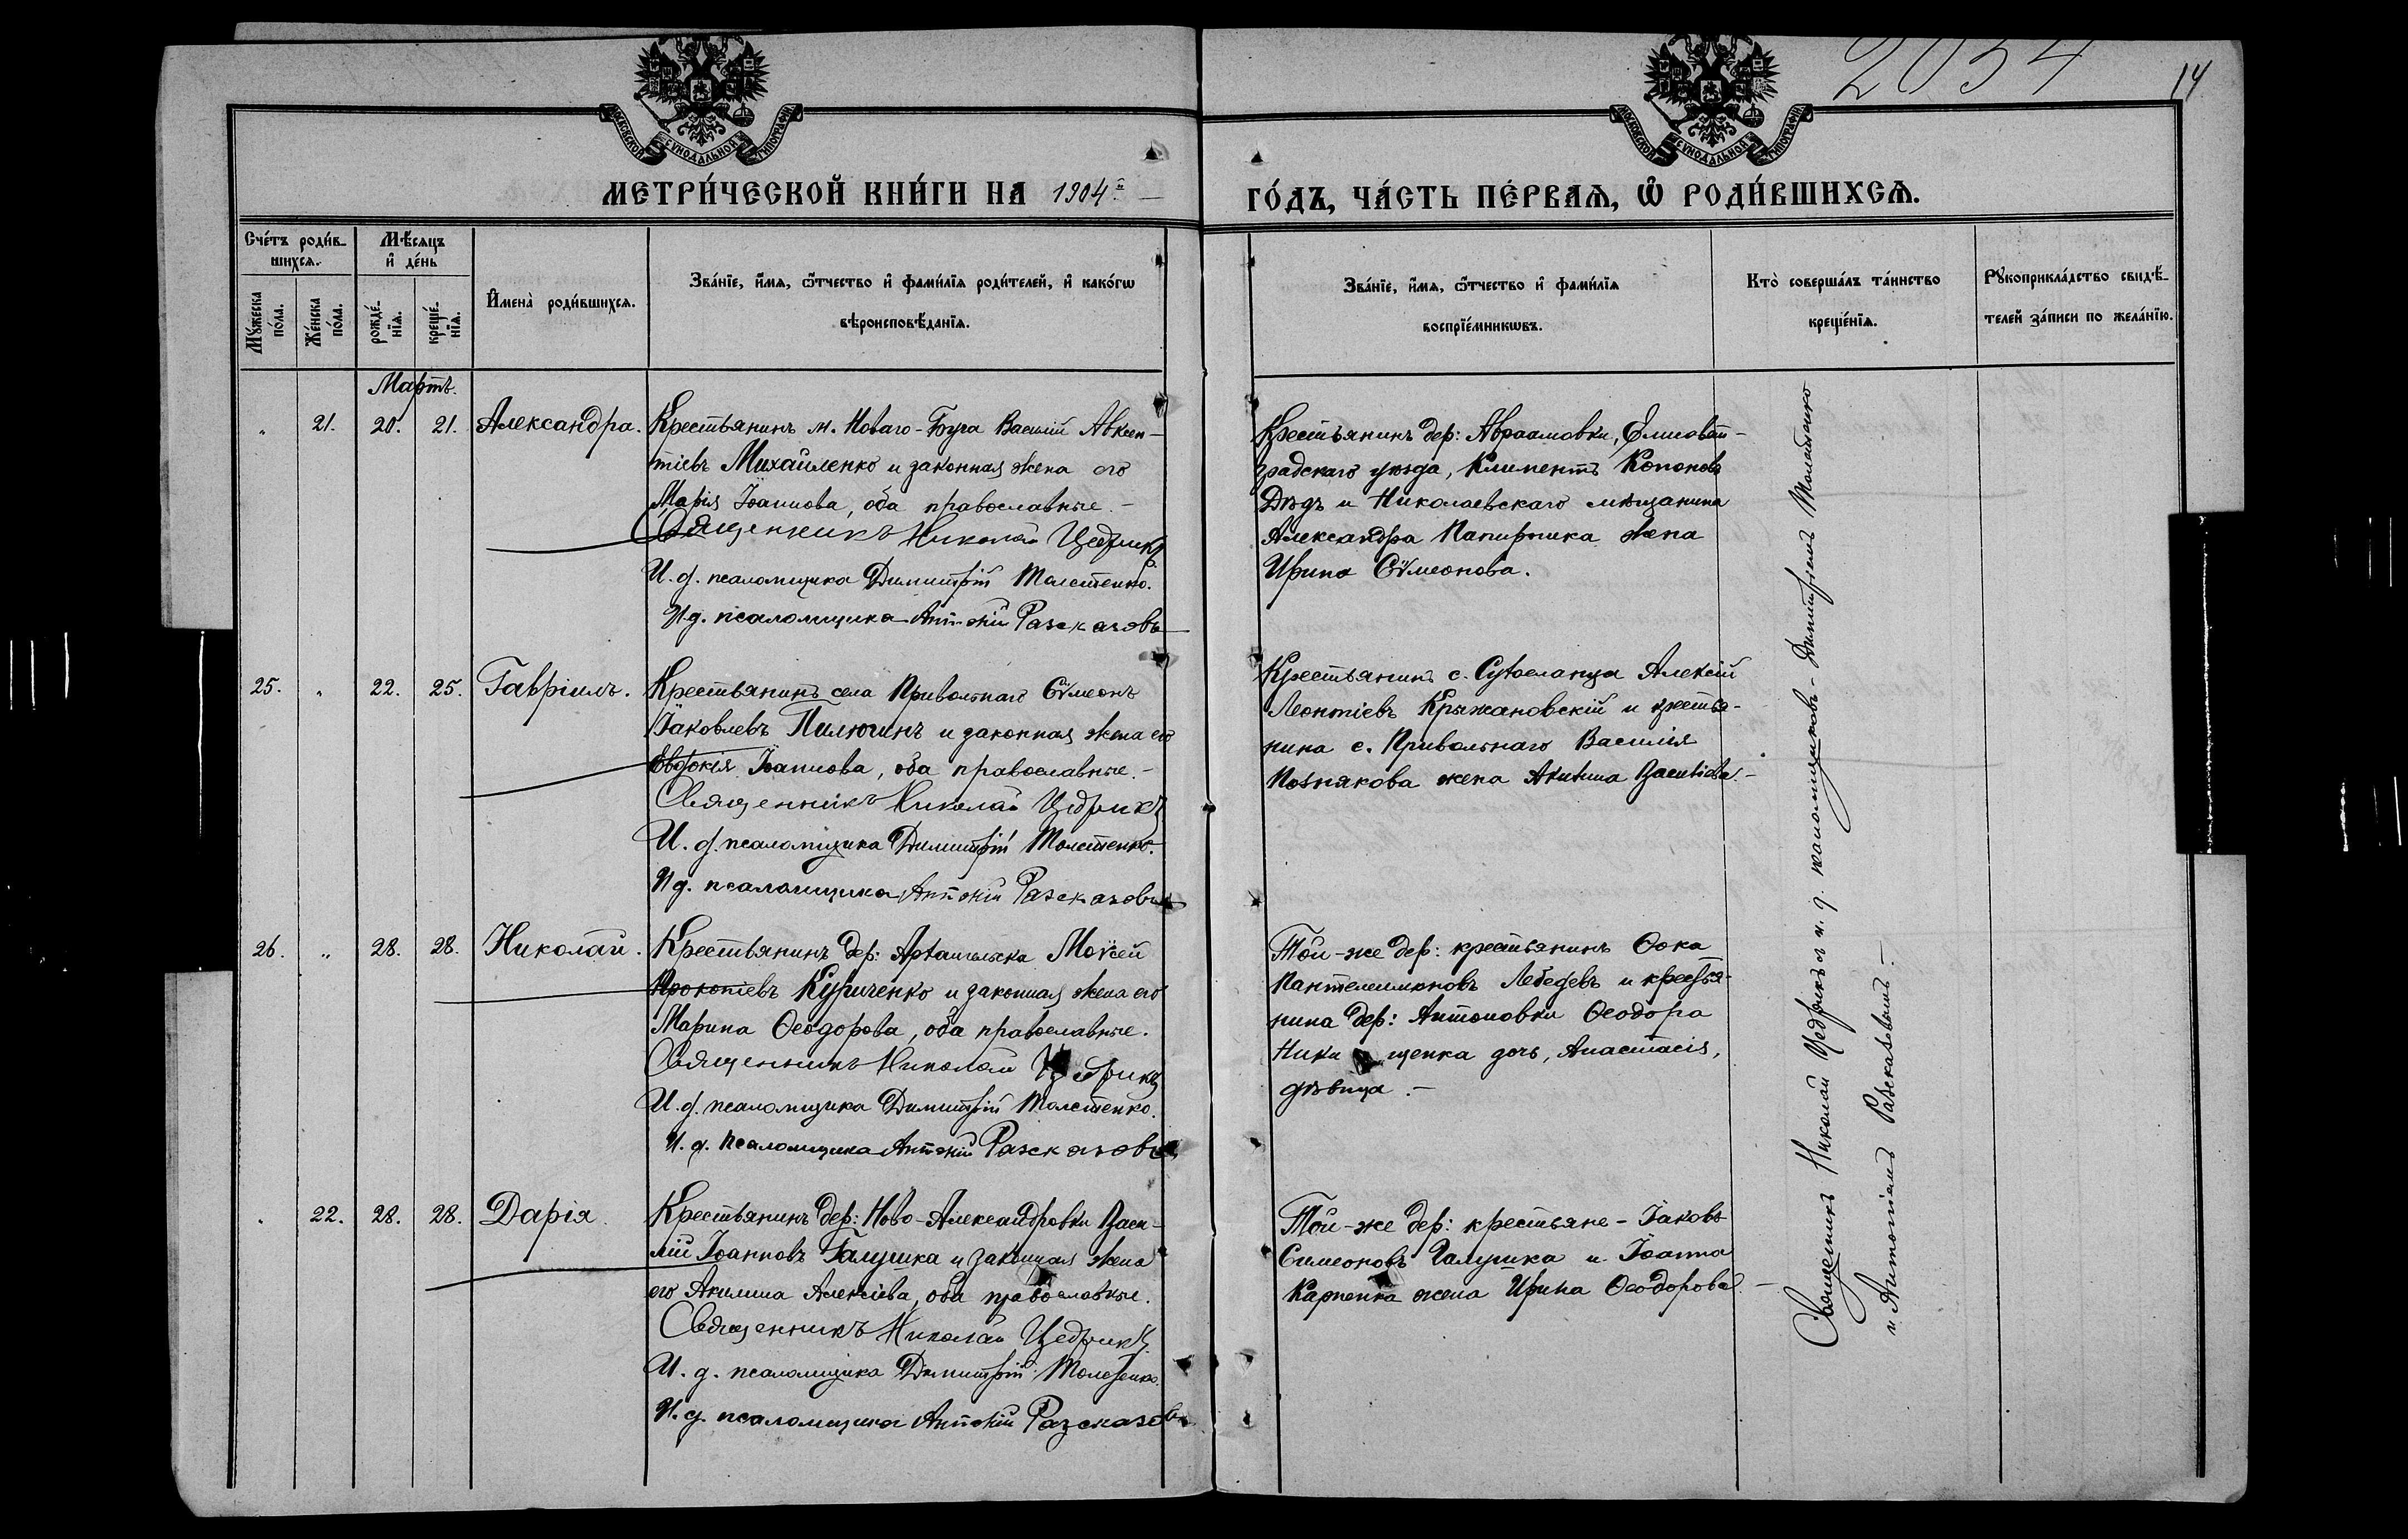 2034
14
МОСКОВСКОЙ СѴНОДАЛЬНОЙ ТИПОГРАФІИ
МОСКОВСКОЙ СѴНОДАЛЬНОЙ ТИПОГРАФІИ
МЕТРИ́ЧЕСКОЙ КНИ́ГИ НА 1904й —
ГО́ДЪ, ЧА́СТЬ ПЕ́РВАѦ, Ѡ҆ РОДИ́ВШИХСѦ.
Сче́тъ роди́в-
шихсѧ.
Мѣ́сяцъ
и҆ де́нь
Мꙋ́жеска
по́ла.
Же́нска
по́ла.
рожде́-
нїѧ.
креще́-
нїѧ.
И҆мена̀ роди́вшихсѧ.
Зва́нїе, и҆́мѧ, ѻ҆́тчество и҆ фами́лїѧ роди́телей, и҆ како́гѡ
вѣроисповѣ́данїѧ.
Зва́нїе, и҆́мѧ, ѻ҆́тчество и҆ фами́лїѧ
воспрїе́мникѡвъ.
Кто̀ соверша́лъ та́инство
креще́нїѧ.
Рꙋкоприкла́дство свидѣ́-
телей за́писи по жела́нїю.
Мартъ.
" 21. 20. 21. Александра.
Крестьянинъ м. Новаго-Буга Василій Авксен-
тіевъ Михайленко и законная жена его
Марія Іоаннова, оба православные. -
Священникъ Николай Цедрикъ
И. д. псаломщика Димитрій Толстенко.
И.д. псаломщика Антоній Разсказовъ
Крестьянинъ дер: Авраамовки, Елисавет-
градскаго уѣзда, Климентъ Кононовъ
Дѣдъ и Николаевскаго мѣщанина
Александра Папирника жена
Ирина Сѵмеонова.
25. " 22. 25. Гавріилъ.
Крестьянинъ села Привольнаго Сѵмеонъ
Іаковлевъ Пилюгинъ и законная жена его
Евдокія Іоаннова, оба православные. -
Священникъ Николай Цедрикъ
И. д. псаломщика Димитрій Толстенко.
И д. псаломщика Антоній Разсказовъ
Крестьянинъ с. Алексій
Леонтіевъ Крыжановскій и крестья-
нина с. Привольнаго Василія
Познякова жена Акилина -
26. " 28. 28. Николай.
Крестьянинъ дер: Архангельска Моѵсей
Прокопіевъ Куриченко и законная жена его
Марина Ѳеодорова, оба православные.
Священникъ Николай Цедрикъ
И. д. псаломщика Димитрій Толстенко.
И. д. псаломщика Антоній Разсказовъ
Той-же дер: крестьянинъ Ѳока
Пантелеимоновъ Лебедевъ и крестья-
нина дер: Антоновки Ѳеодора
щенка дочь, Анастасія,
дѣвица. -
" 22. 28. 28. Дарія.
Крестьянинъ дер: Ново-Александровки Васи-
лій Іоанновъ Галушка и законная жена
его Акилина Алексіева, оба православные.
Священникъ Николай Цедрикъ.
И. д. псаломщика Димитрій Толстенко.
И. д. псаломщика Антоній Разсказовъ
Той-же дер: крестьяне - Іаковъ
Симеоновъ Галушка и Іоанна
Карпенка жена Ирина Ѳеодорова. -
Священникъ Николай Цедрикъ съ и. д. псаломщиковъ - Димитріемъ Толстенко
и Антоніемъ Разсказовымъ. -